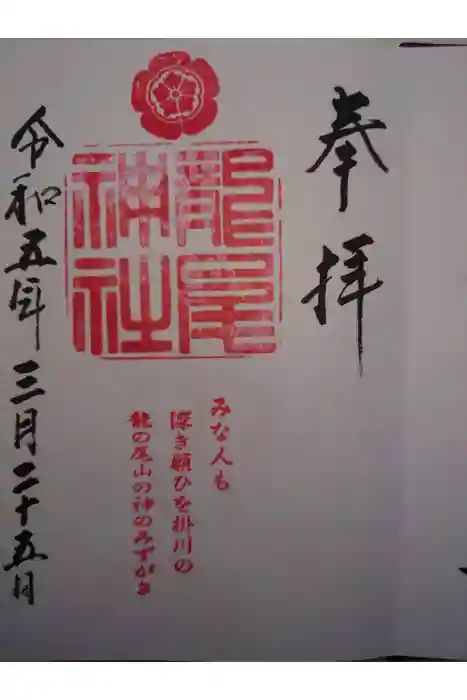 奉拝
龍尾神社
みな人も
深き願ひを掛川の
龍の尾山の神のみずがき
令和五年三月二十五日